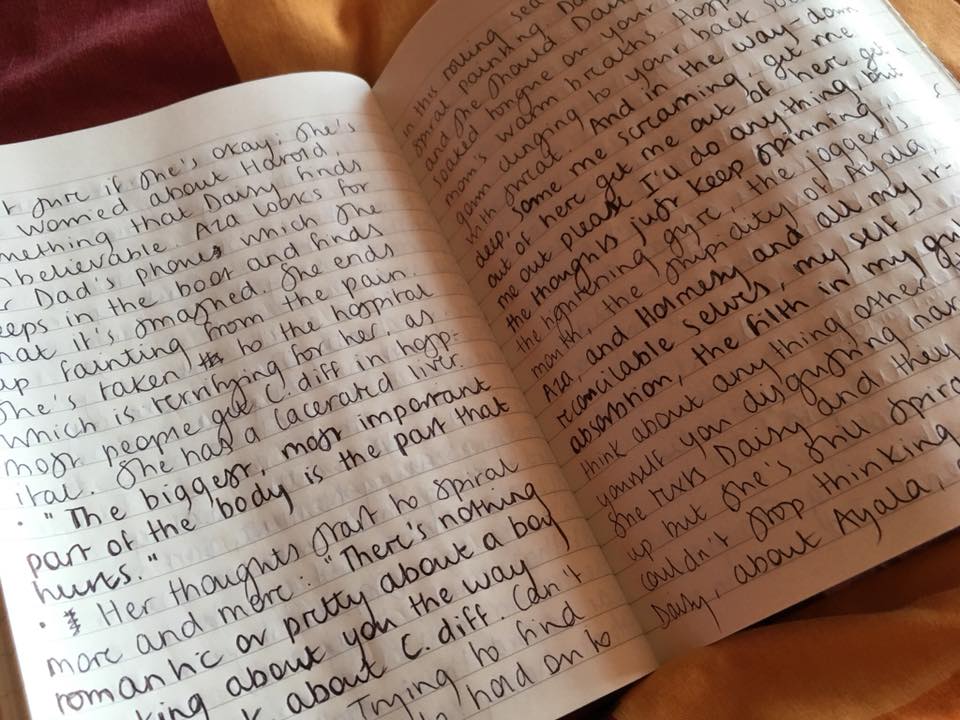 t sure if she's okay; she's
worried about Harold,
mething that Daisy finds
nbelievable. Aza looks for
r Dad's phone, which she
eeps in the boot and finds
hat it's smashed. She ends
up fainting from the pain.
She's taken to the hospital
which is terrifying for her, as
most people get C. diff in hosp-
ital. She has a lacerated liver.
• "The biggest, most important
part of the body is the part that
hurts."
• Her thoughts start to spiral
more and more: "There's nothing
romantic or pretty about a boy
king about you the way
about C. diff. Can't
Trying to find
hold on to
in this rolling sea
spiral painting Da
and she should Dais
soaked tongue on your
mom's warm breaths. Hosp
gown clinging to your back soa
with sweat. And in the way-down
deep, some me screaming, get me
out of here get me out of here get
me out please I'll do anything, but
the thoughts just keep spinning,
the tightening gyre, the jogger's
mouth, the stupidity of Ayala,
Aza, and Holmesy and all my ir-
reconcilable selves, my self-
absorbtion, the filth in my gu
think about any thing other
yourself you disgusting narc
She texts Daisy and they
up but she's still spiral
couldn't stop thinking
Daisy, about Ayala,